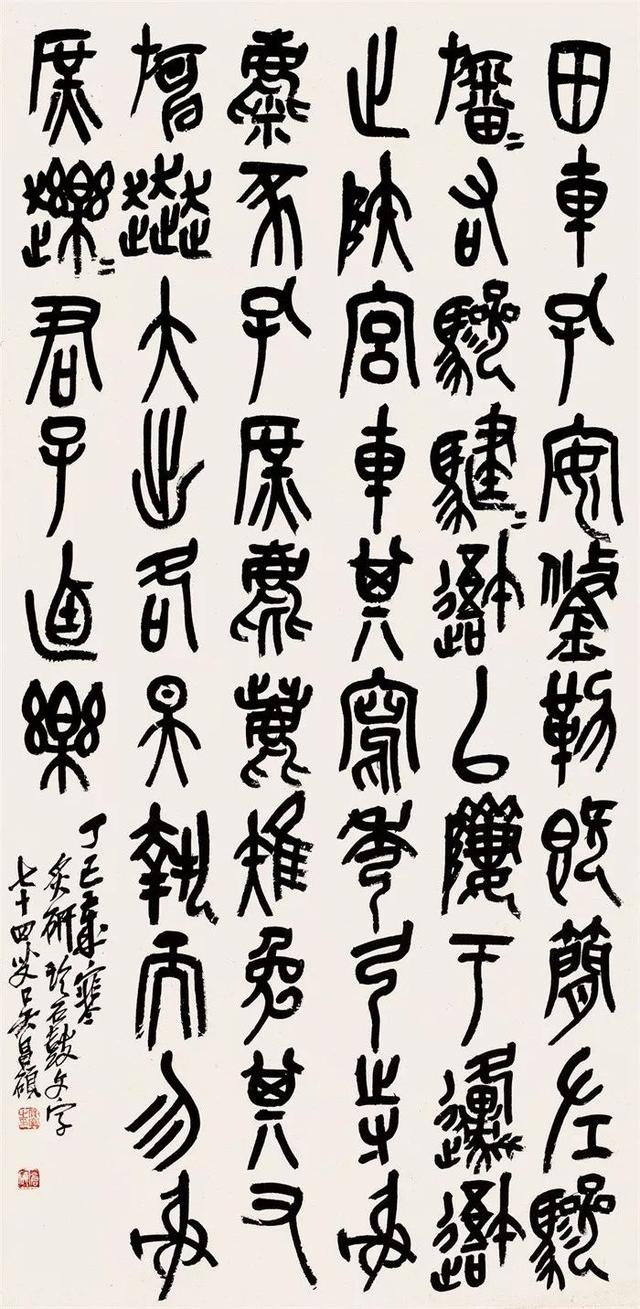 田車孔安鋚勒既簡左驂
旛=右驂騝=䢐以隮于邍䢐
止陜宮車其寫秀弓寺射
麋豕孔庶麀鹿雉兔其又
奔大出各昊執而勿射
庶君子迺樂
丁巳歲寒
炙研臨石鼓文字
七十四叟吳昌碩